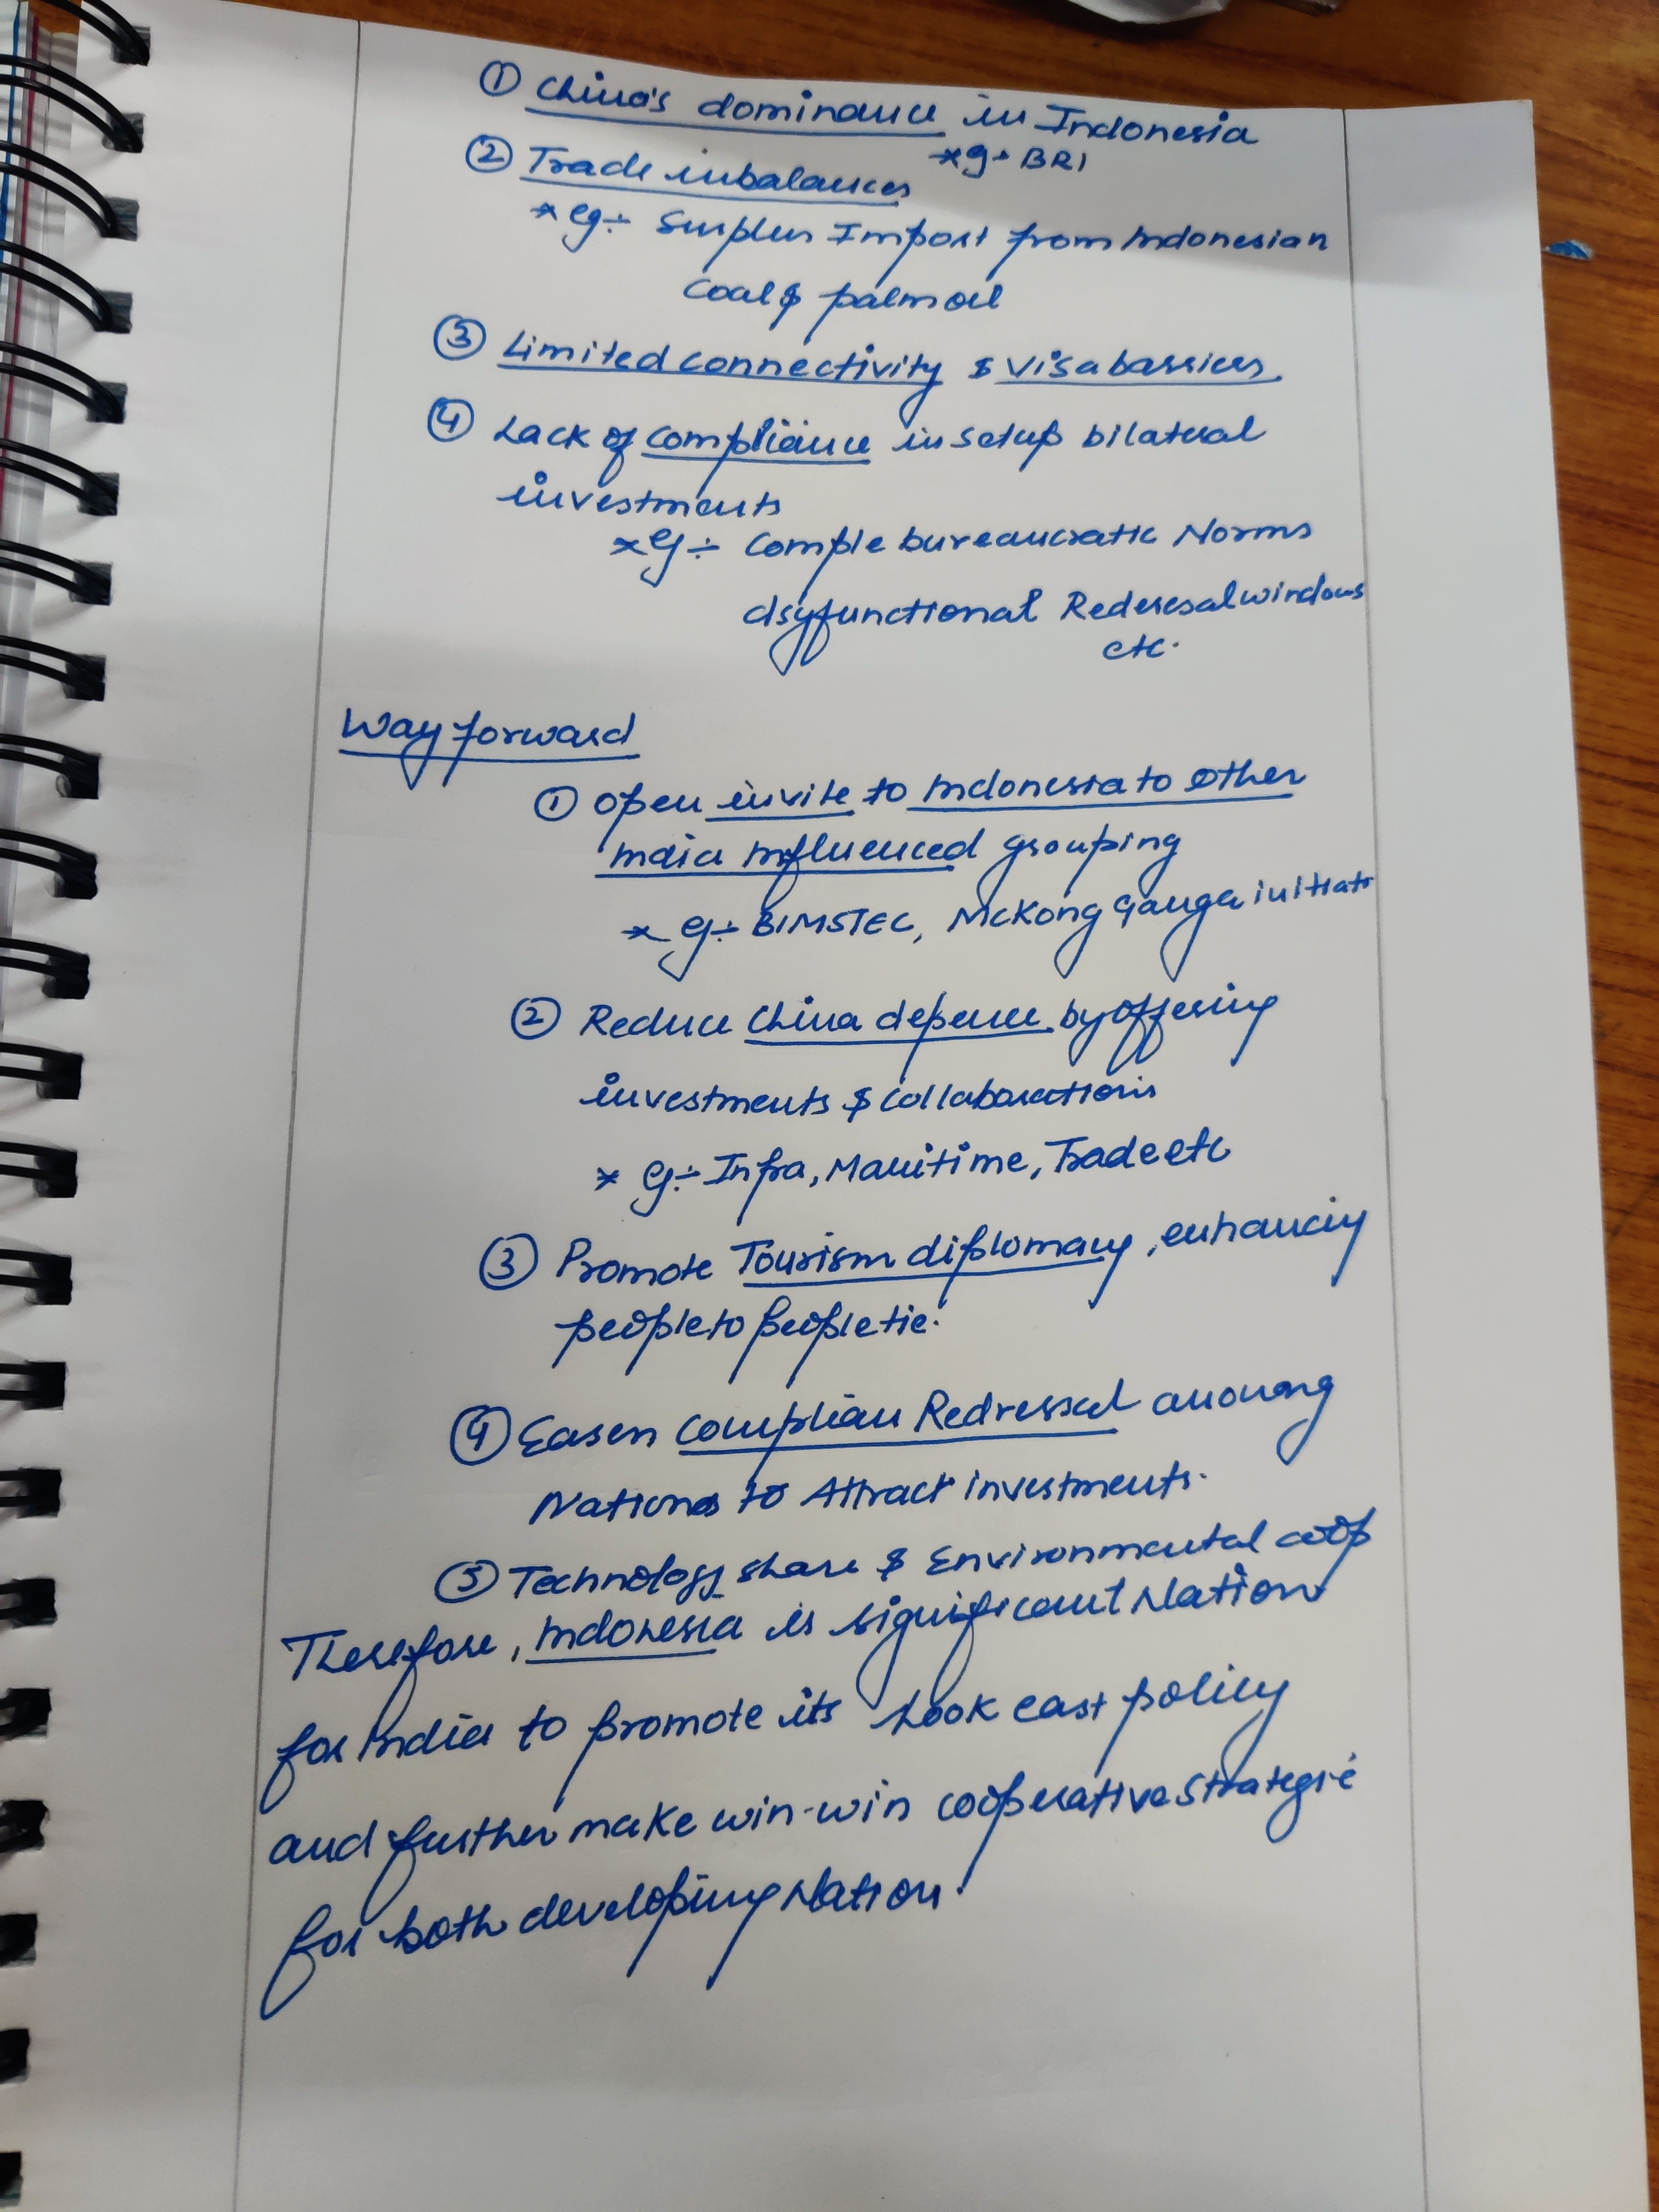 ① China's dominance in Indonesia
* eg ÷ BRI
② Trade inbalances
* eg ÷ Surplus Import from Indonesian
Coal & palm oil
③ Limited connectivity & Visa barriers.
④ Lack of compliance in setup bilateral
investments
* eg ÷ Comple bureaucratic Norms
dsyfunctional Rederesal windows
etc.
Way forward
① Open invite to Indonesia to Other
India Influenced grouping
* eg ÷ BIMSTEC, Mekong Ganga initiatv
② Reduce China depence by offering
investments & collaborations
* eg ÷ Infra, Maritime, Trade etc
③ Promote Tourism diplomacy, enhancing
people to people tie.
④ Easen Redressal among
Nations to Attract investments.
⑤ Technology share & Environmental coop
Therefore, Indonesia is significant Nation
for India to promote its Look east policy
and further make win-win cooperative strategie
for both developing Nation.